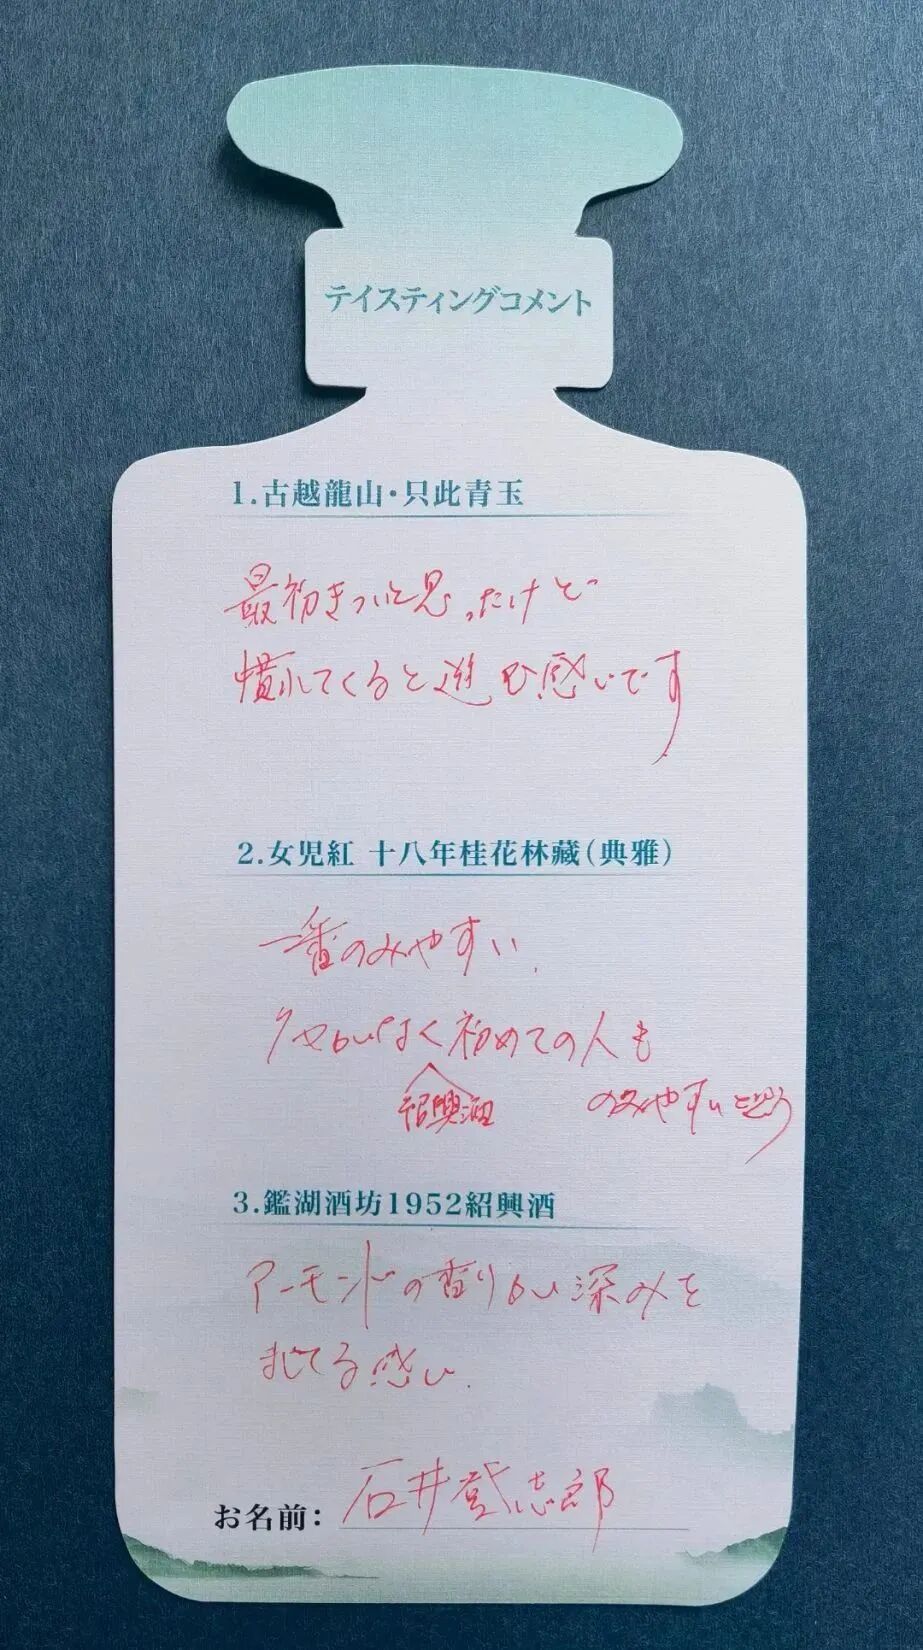 テイスティングコメント
1.古越龍山・只此青玉
最初きついと思ったけど
慣れてくると進む感じです
2.女児紅 十八年桂花林藏(典雅)
一番のみやすい
クセがなく初めての人も
紹興酒
のみやすいと思う
3.鑑湖酒坊1952紹興酒
アーモンドの香りが深みを
ましてる感じ
お名前: 石井登志郎